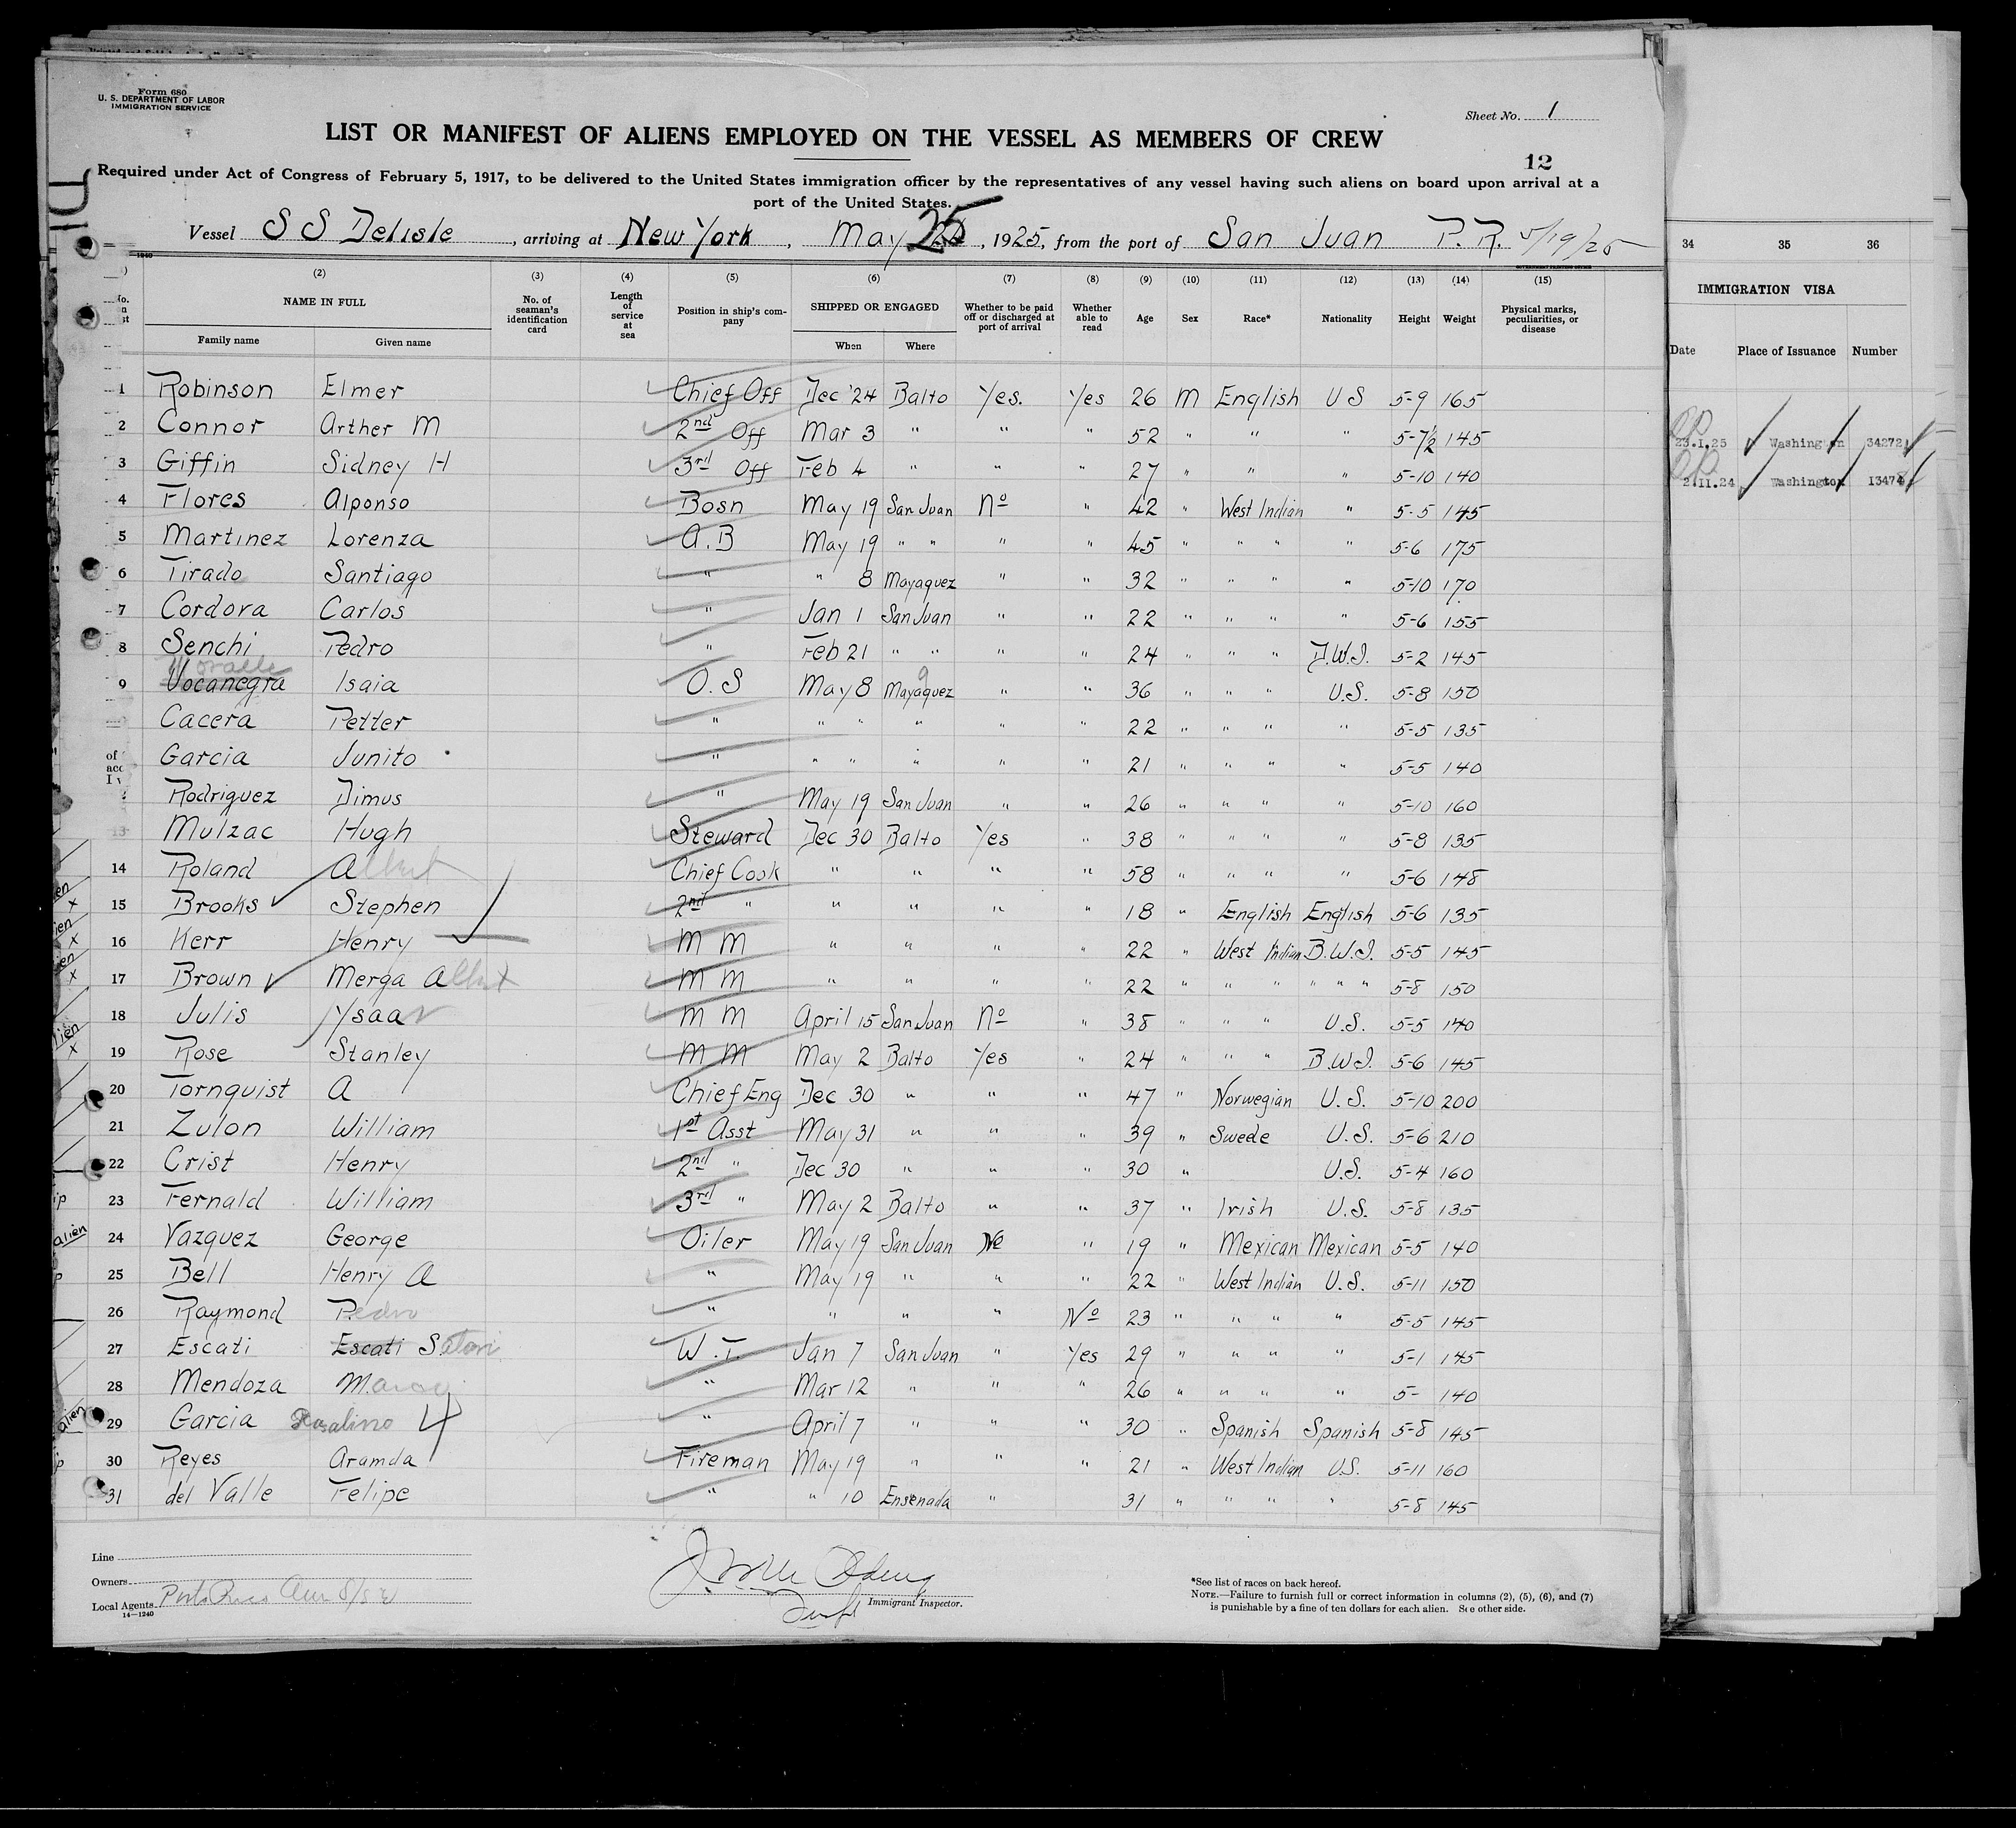 Form 680
U. S. DEPARTMENT OF LABOR
IMMIGRATION SERVICE
Sheet No. 1
LIST OR MANIFEST OF ALIENS EMPLOYED ON THE VESSEL AS MEMBERS OF CREW
12
Required under Act of Congress of February 5, 1917, to be delivered to the United States immigration officer by the representatives of any vessel having such aliens on board upon arrival at a
port of the United States.
Vessel SS Delisle, arriving at New York, May 25, 1925, from the port of San Juan P.R. 5/19/25
(2) (3) (4) (5) (6) (7) (8) (9) (10) (11) (12) (13) (14) (15) 34 35 36
NAME IN FULL No. of seaman's identification card Length of service at sea Position in ship's company SHIPPED OR ENGAGED Whether to be paid off or discharged at port of arrival Whether able to read Age Sex Race* Nationality Height Weight Physical marks, peculiarities, or disease IMMIGRATION VISA
Family name Given name When Where Date Place of Issuance Number
1 Robinson Elmer Chief Off Dec '24 Balto Yes. Yes 26 M English US 5-9 165
2 Connor Arther M 2nd Off Mar 3 " " " 52 " " " 5-7½ 145 23.I.25 Washington 34272
3 Giffin Sidney H 3rd Off Feb 4 " " " 27 " " " 5-10 140 2.II.24 Washington 13474
4 Flores Alponso Bosn May 19 San Juan No " 42 " West Indian " 5-5 145
5 Martinez Lorenza A.B May 19 " " " " 45 " " " " 5-6 175
6 Tirado Santiago " " 8 Mayaquez " " 32 " " " " 5-10 170
7 Cordova Carlos " Jan 1 San Juan " " 22 " " " " 5-6 155
8 Senchi Pedro " Feb 21 " " " " 24 " " " D.W.I. 5-2 145
9 Vocanegra Isaia O.S May 8 Mayaquez " " 36 " " " U.S. 5-8 150
Cacera Petter " " " " " " 22 " " " " 5-5 135
Garcia Junito " " " " " " 21 " " " " 5-5 140
Rodriguez Dimus " May 19 San Juan " " 26 " " " " 5-10 160
13 Mulzac Hugh Steward Dec 30 Balto Yes " 38 " " " " 5-8 135
14 Roland Albert Chief Cook " " " " 58 " " " " 5-6 148
15 Brooks Stephen 2nd " " " " " 18 " English English 5-6 135
16 Kerr Henry M M " " " " 22 " West Indian B.W.I. 5-5 145
17 Brown Merga Albert M M " " " " 22 " " " " " " 5-8 150
18 Julis Ysaa M M April 15 San Juan No " 38 " " " U.S. 5-5 140
19 Rose Stanley M M May 2 Balto Yes " 24 " " " B.W.I. 5-6 145
20 Tornquist A Chief Eng Dec 30 " " " 47 " Norwegian U.S. 5-10 200
21 Zulon William 1st Asst May 31 " " " 39 " Swede U.S. 5-6 210
22 Crist Henry 2nd " Dec 30 " " " 30 " U.S. 5-4 160
23 Fernald William 3rd " May 2 Balto " " 37 " Irish U.S. 5-8 135
alien 24 Vazquez George Oiler May 19 San Juan No " 19 " Mexican Mexican 5-5 140
25 Bell Henry A " May 19 " " " 22 " West Indian U.S. 5-11 150
26 Raymond Pedro " " " " No 23 " " " " 5-5 145
27 Escati Escati W.T. Jan 7 San Juan " Yes 29 " " " " 5-1 145
28 Mendoza " Mar 12 " " " 26 " " " " 5- 140
alien 29 Garcia Rosalino " April 7 " " " 30 " Spanish Spanish 5-8 145
30 Reyes Aramda Fireman May 19 " " " 21 " West Indian U.S. 5-11 160
31 del Valle Felipe " " 10 Ensenada " 31 " " " " 5-8 145
Line
Owners
Local Agents Porto Rico
14—1240
Immigrant Inspector.
*See list of races on back hereof.
NOTE.—Failure to furnish full or correct information in columns (2), (5), (6), and (7)
is punishable by a fine of ten dollars for each alien. See other side.